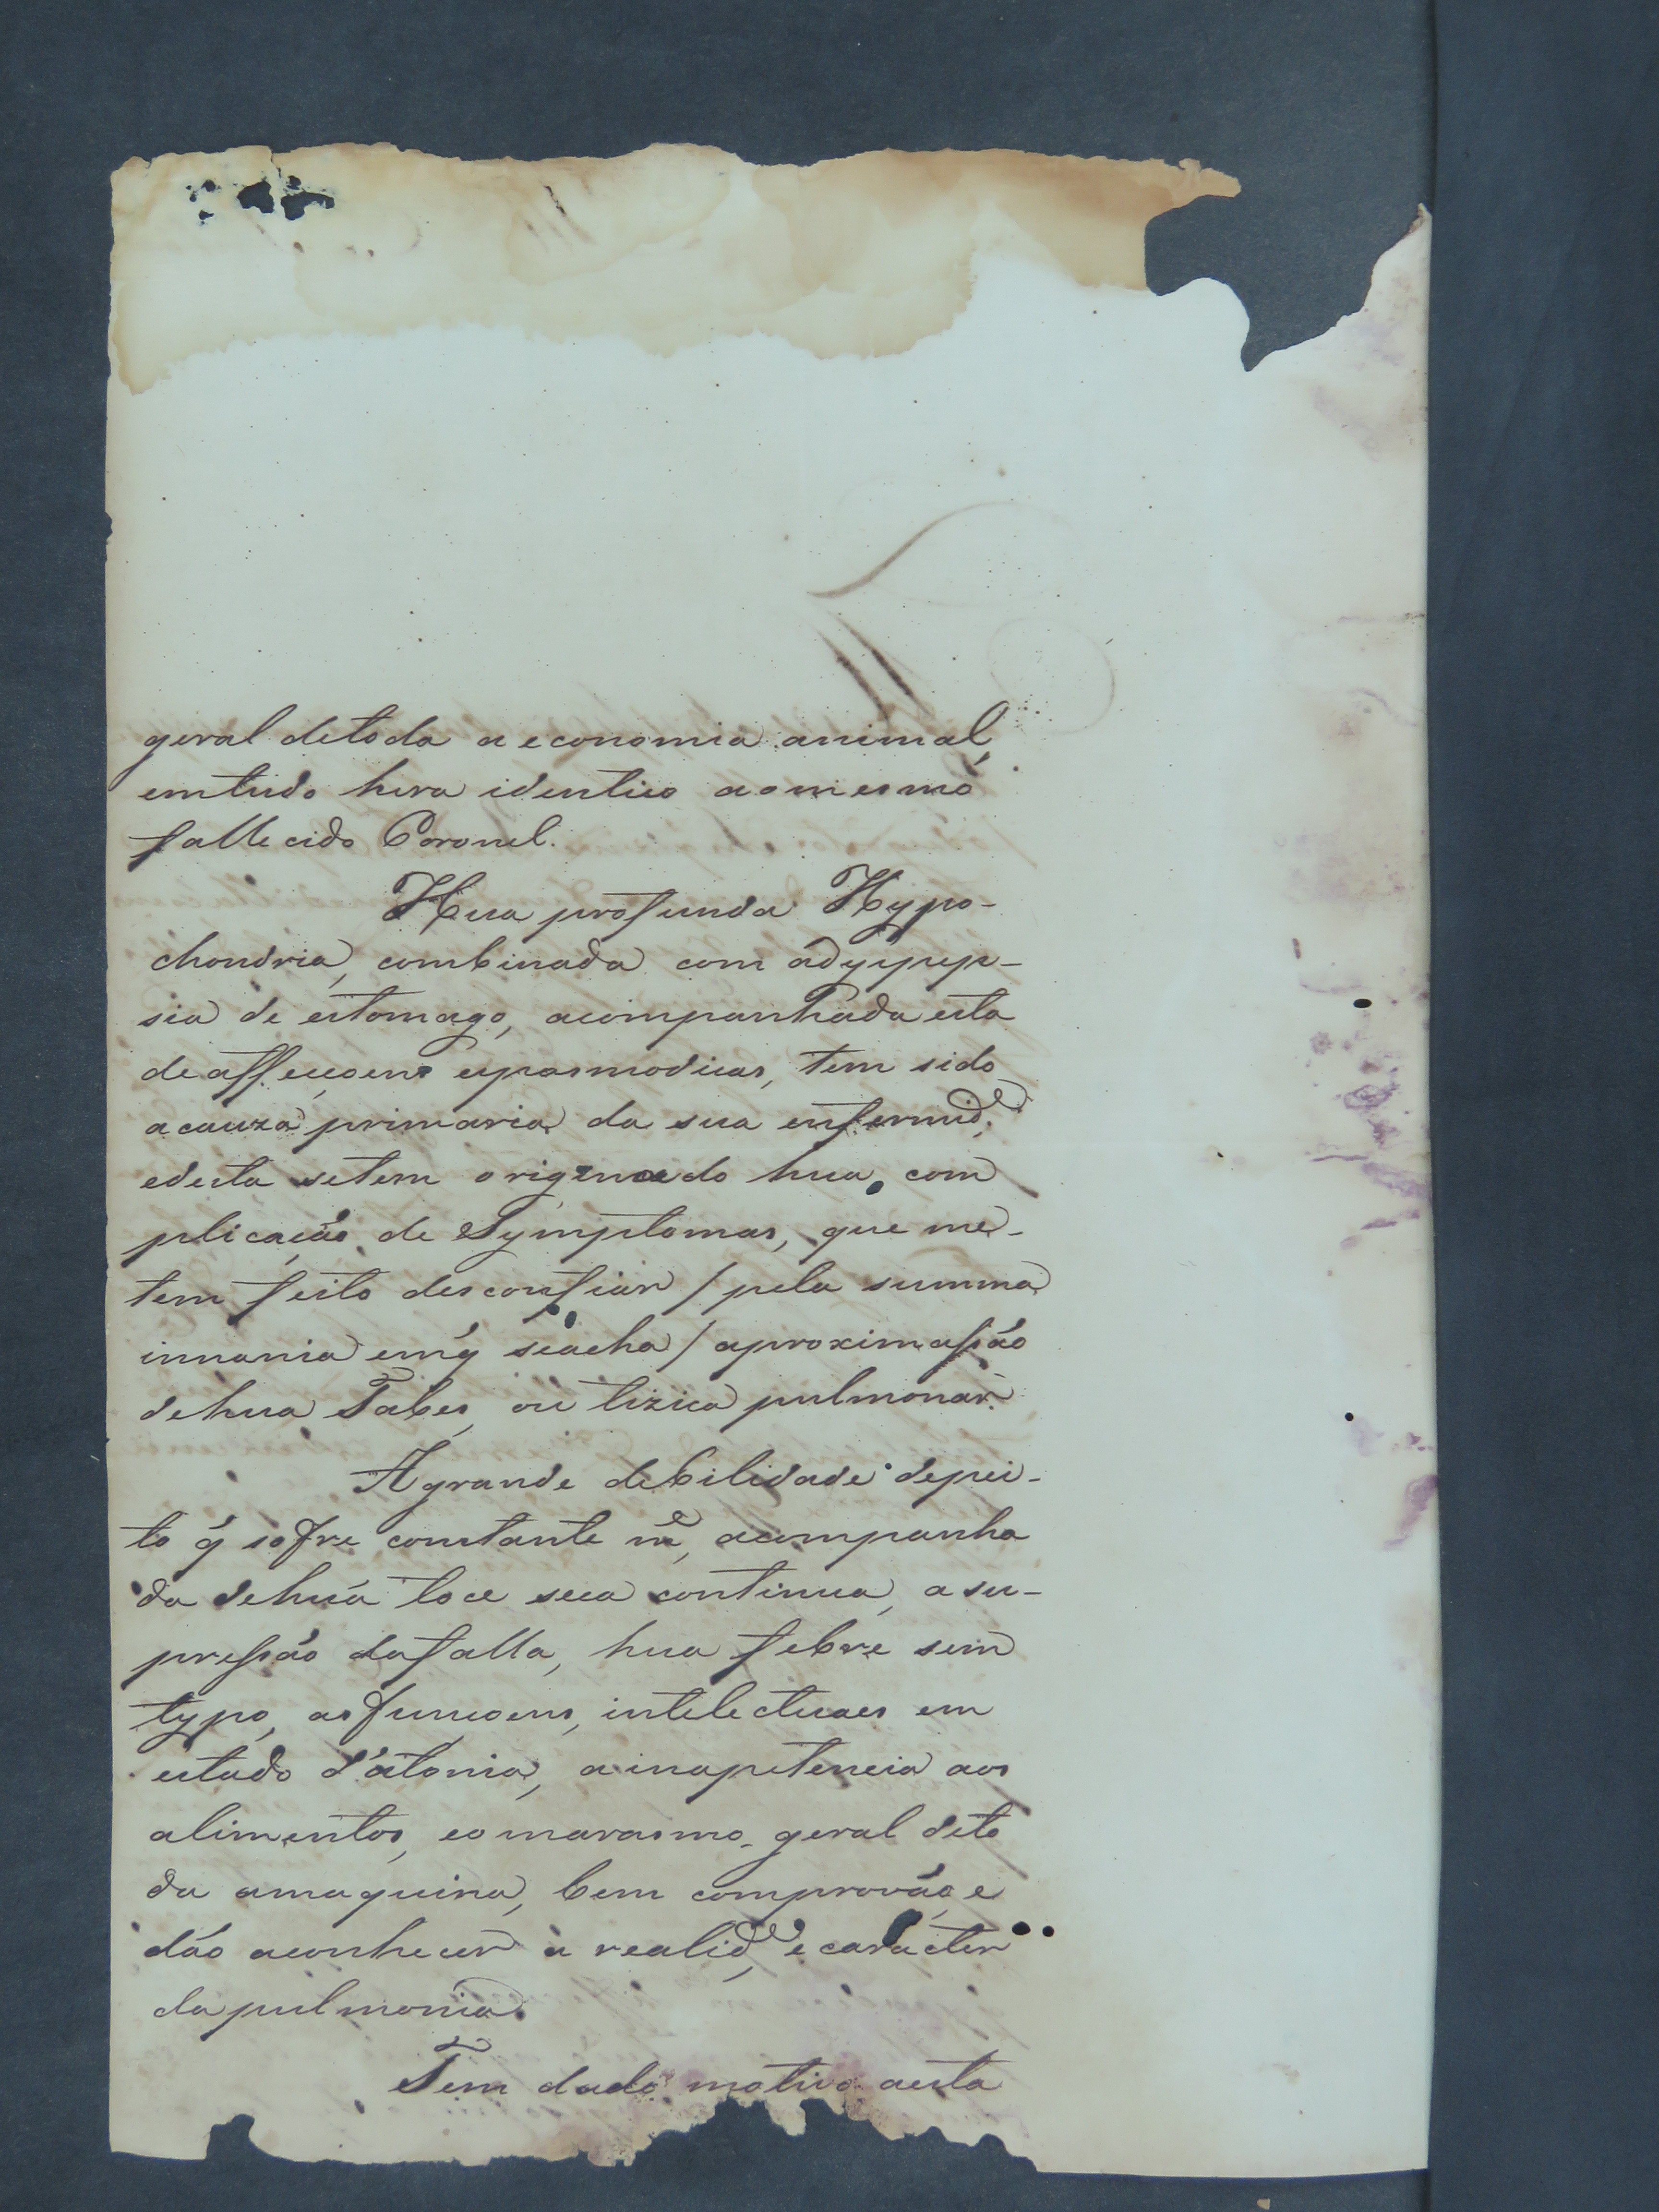 geral detoda a economia animal,
emtudo hera identico aomesmo
fallecido Coronel.
Hua profunda Hypo-
chondria, combinada com adyspep-
sia de estomago, acompanhada esta
de affecçoens espasmodicas, tem sido
acauza primaria da sua enfermid.e
edesta setem originado hua com
plicação de Symptomas, que me-
tem feito desconfiar / pela summa
innania em q̃ seacha / aproximassão
dehua Tabes, ou tizica pulmonar.
Agrande debilidade depei-
to q̃ sofre constante m.e, acompanha
da dehuá toce seca continua, a su-
pressão dafalla, hua febre sem
typo, asfuncoens, intelectuaes em
estado d'atonia, a inapetencia aos
alimentos, eo marasmo geral deto
da amaquina, bem comprovão, e
dão aconhecer a realid.e, e caracter
dapulmonia.
Tem dado motivo aesta